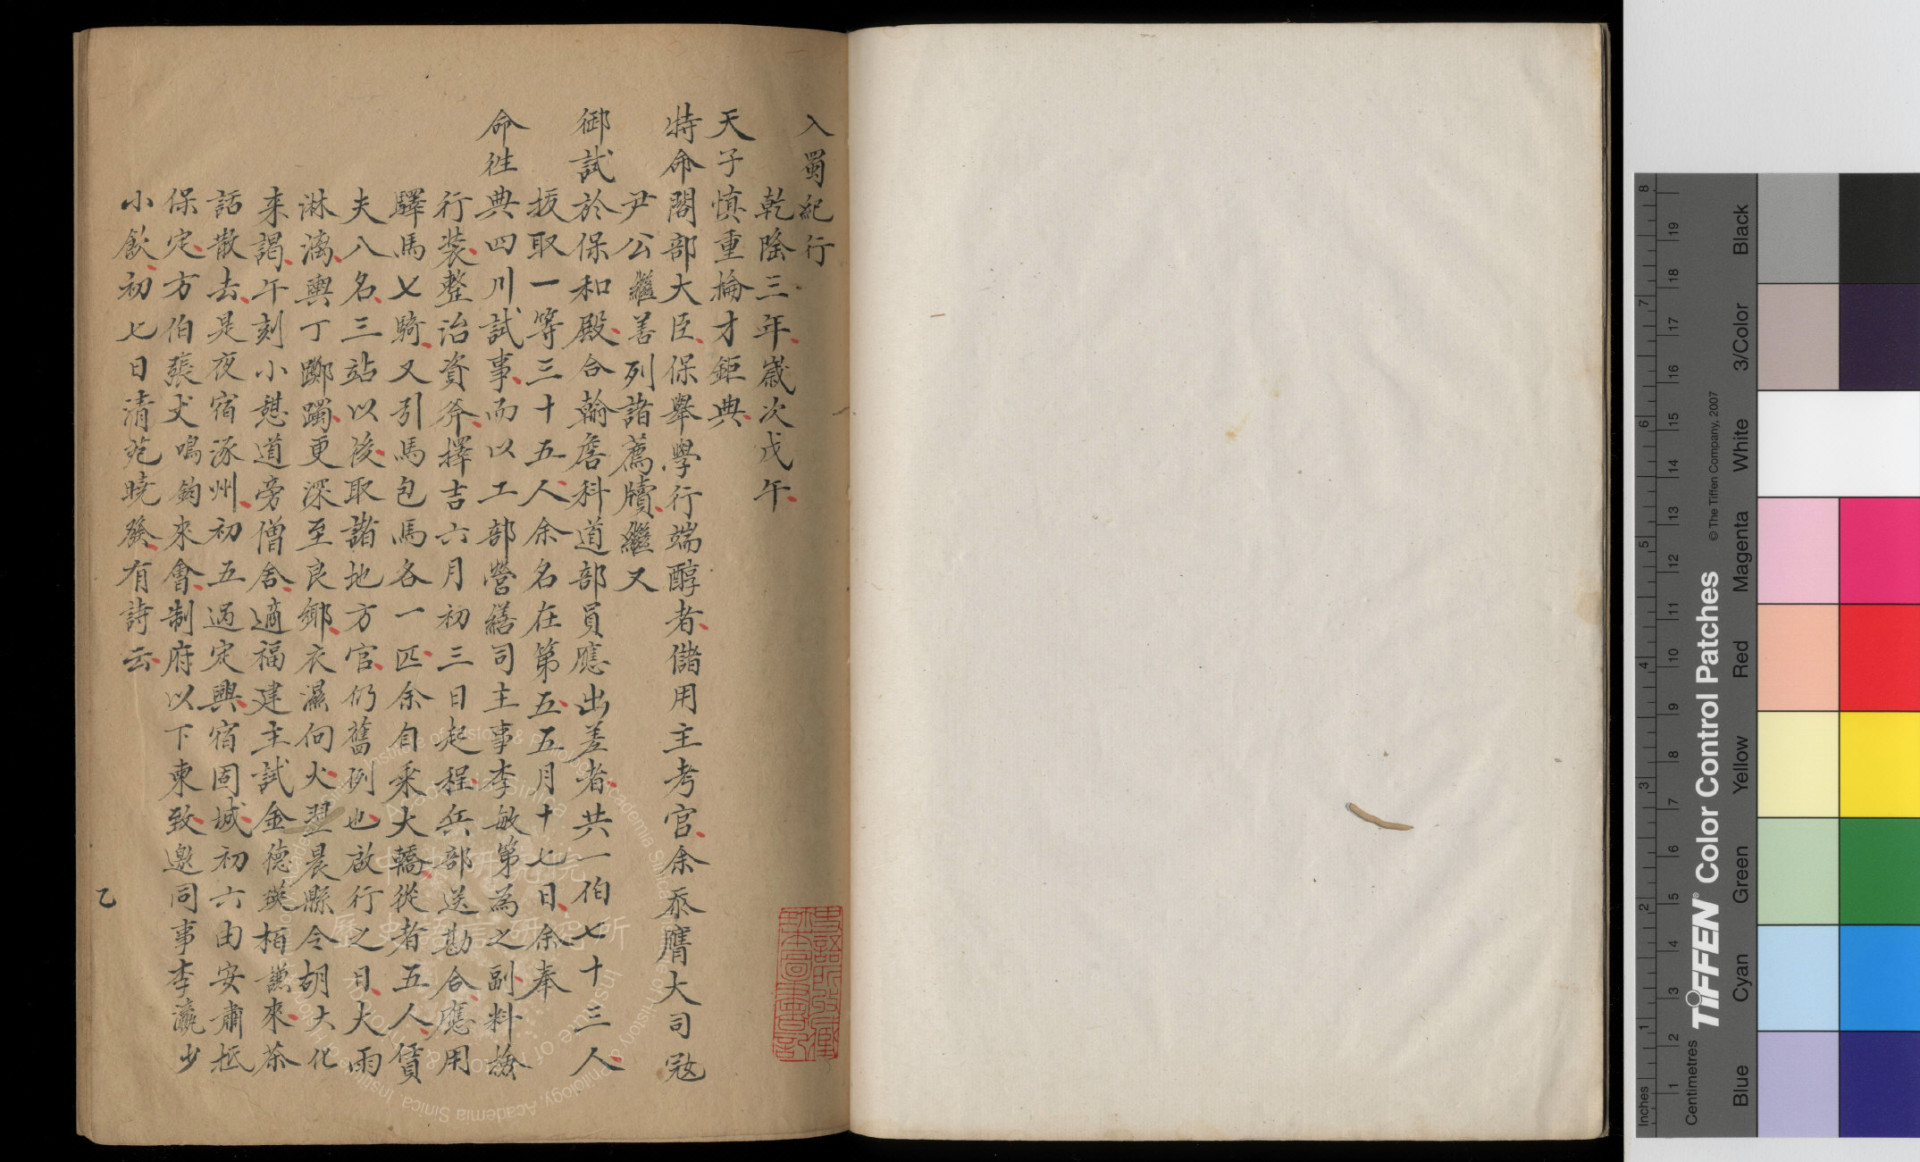 入蜀紀行
乾隆三年歲次戊午
天子慎重掄才鉅典
特命閣部大臣保舉學行端醇者儲用主考官余忝膺大司寇
尹公繼善列諸薦牘繼又
御試於保和殿合翰詹科道部員應出差者共一伯七十三人
拔取一等三十五人余名在第五五月十七日余奉
命往典四川試事而以工部營繕司主事李敏第為之副料撿
行裝整治資斧擇吉六月初三日起程兵部送勘合應用
驛馬七騎又引馬包馬各一匹余自乘大轎從者五人賃
夫八名三站以後取諸地方官仍舊例也啟行之日大雨
淋漓輿丁躑躅更深至良鄉衣濕向火翌晨縣令胡大化
來謁午刻小憩道旁僧舍適福建主試金德瑛柏謙來茶
話散去是夜宿涿州初五過定興宿固城初六由安肅抵
保定方伯張犬鳴鈞來會制府以下柬致邀同事李瀛少
小飲初七日清苑曉發有詩云
乙
史語所收藏
珍本圖書記
Centimetres
Inches
TIFFEN Color Control Patches
© The Tiffen Company, 2007
Blue
Cyan
Green
Yellow
Red
Magenta
White
3/Color
Black